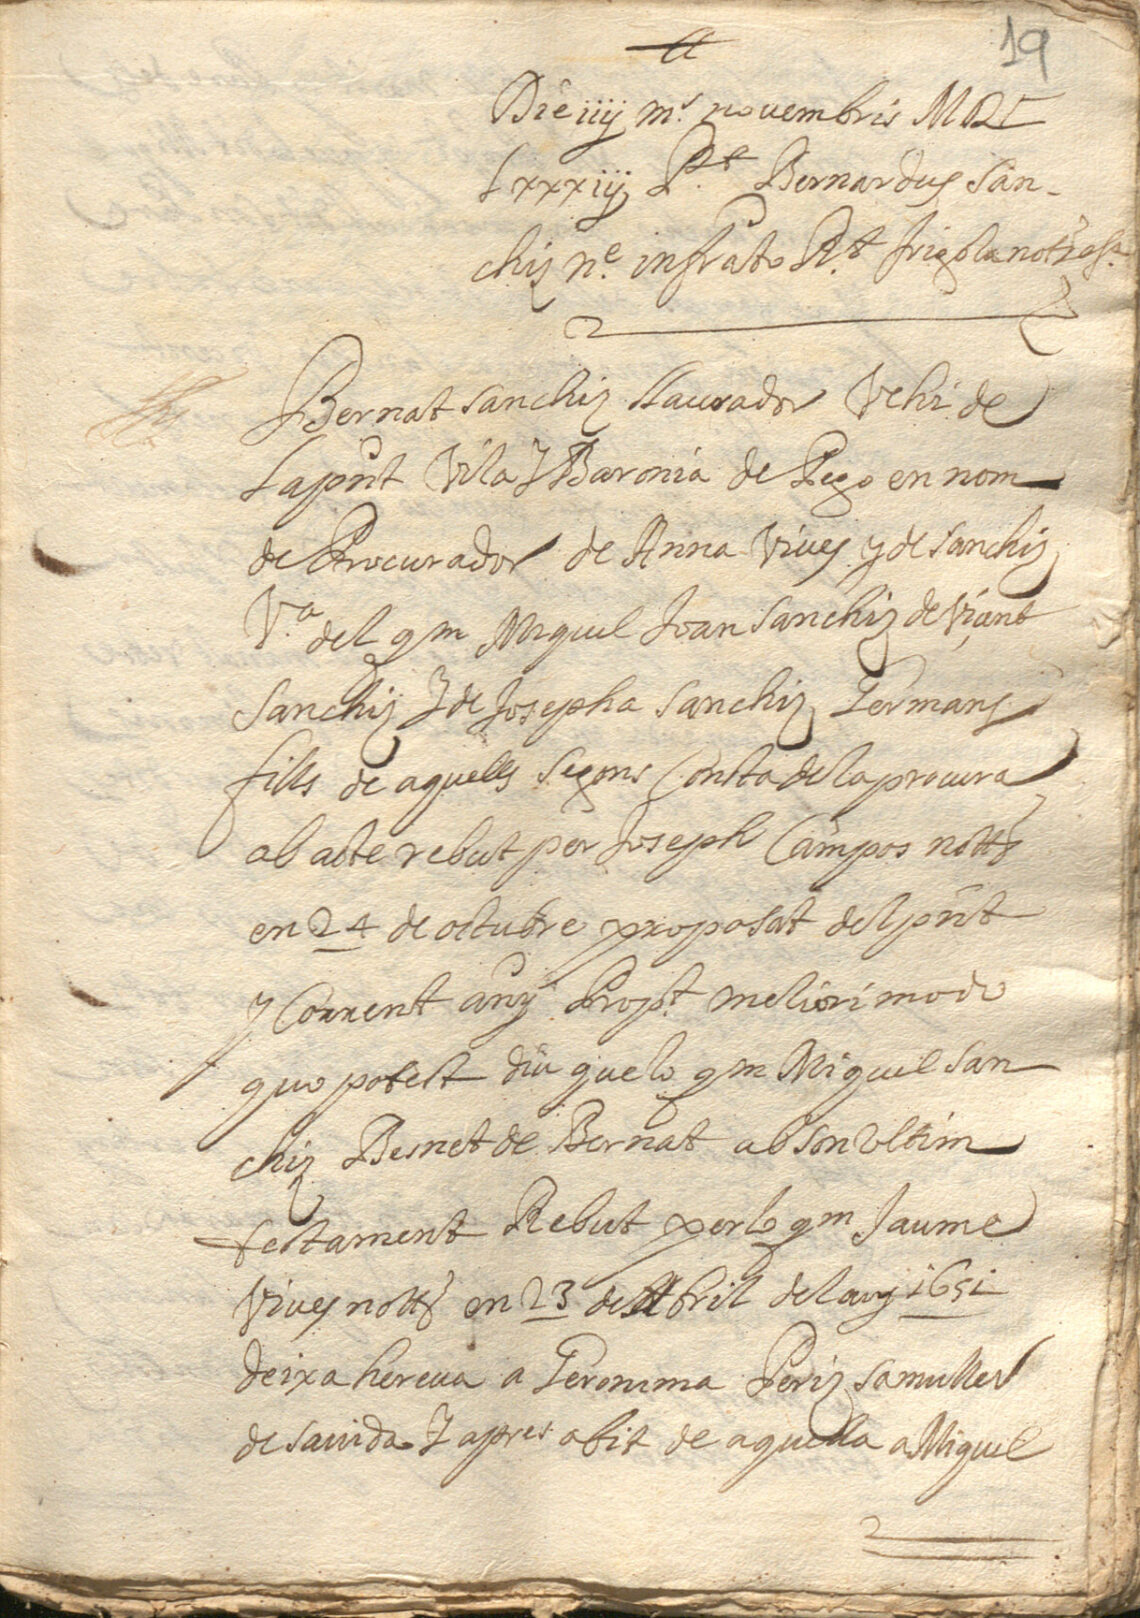 19
Die iiij m.s novembris MDC
Lxxxiiij P.t Bernardus San-
chis n.e infrato R.t frigola not
Bernat Sanchiz llaurador Vehi de
la pnt Vila y Baronia de Pego en nom
de Procurador de Anna Vives y de Sanchiz
V.a del qm Miquel Joan Sanchiz de Viçent
Sanchiz y de Josepha Sanchiz Germans
fills de aquells segons Consta de la procura
ab acte rebut per Joseph Campos nott
en 24 de octubre proposat del pnt
y Corrent any Prop.t meliori modo
quo potest diu que lo qm Miquel San
chiz Besnet de Bernat ab son Ultim
testament Rebut per lo qm Jaume
Vives nott en 23 de Abril del any 1651
deixa hereva a Geronima Periz sa muller
de sa vida y apres obit de aquella a Miquel